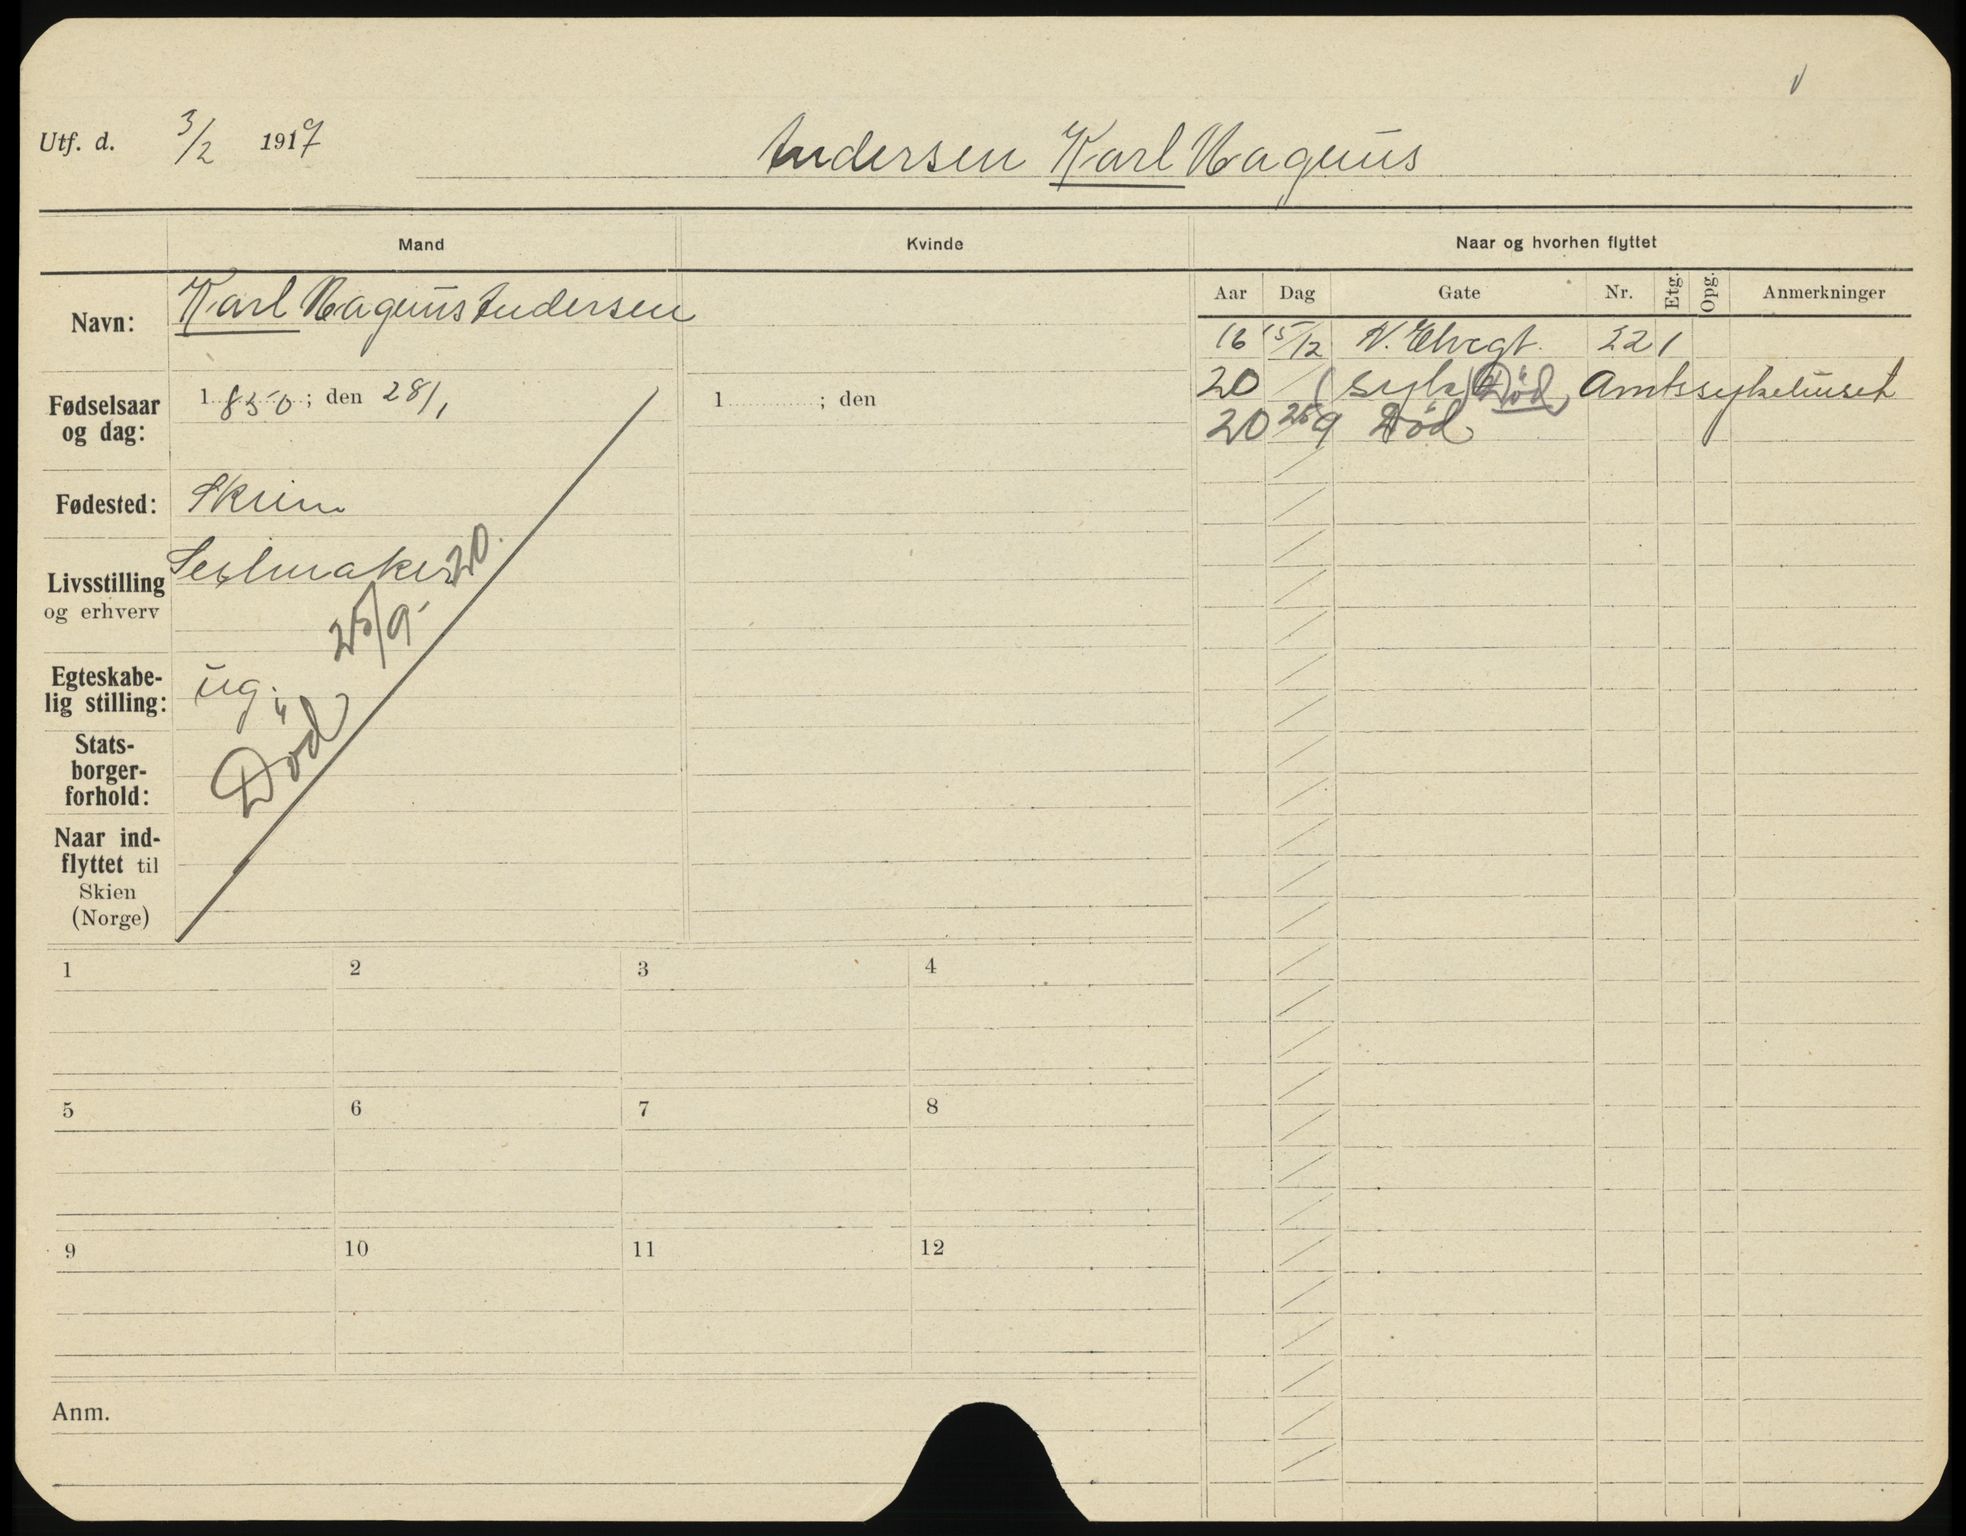 Utf. d. 3/2 1917 Andersen Karl Magnus
Mand Kvinde Naar og hvorhen flyttet
Navn: Karl Magnus Andersen
Aar Dag Gate Nr. Etg. Opg. Anmerkninger
16 15/12 N. Elvegt. 22 1
20 / (syk) Död, Amtssykehuset
20 25/9 Död
Fødselsaar og dag: 1850; den 28/1 1 ; den
Fødested: Skien
Livsstilling og erhverv Seilmaker
Egteskabe-
lig stilling: ug.
Død 25/9-20.
Stats-
borger-
forhold:
Naar ind-
flyttet til
Skien
(Norge)
1 2 3 4
5 6 7 8
9 10 11 12
Anm.